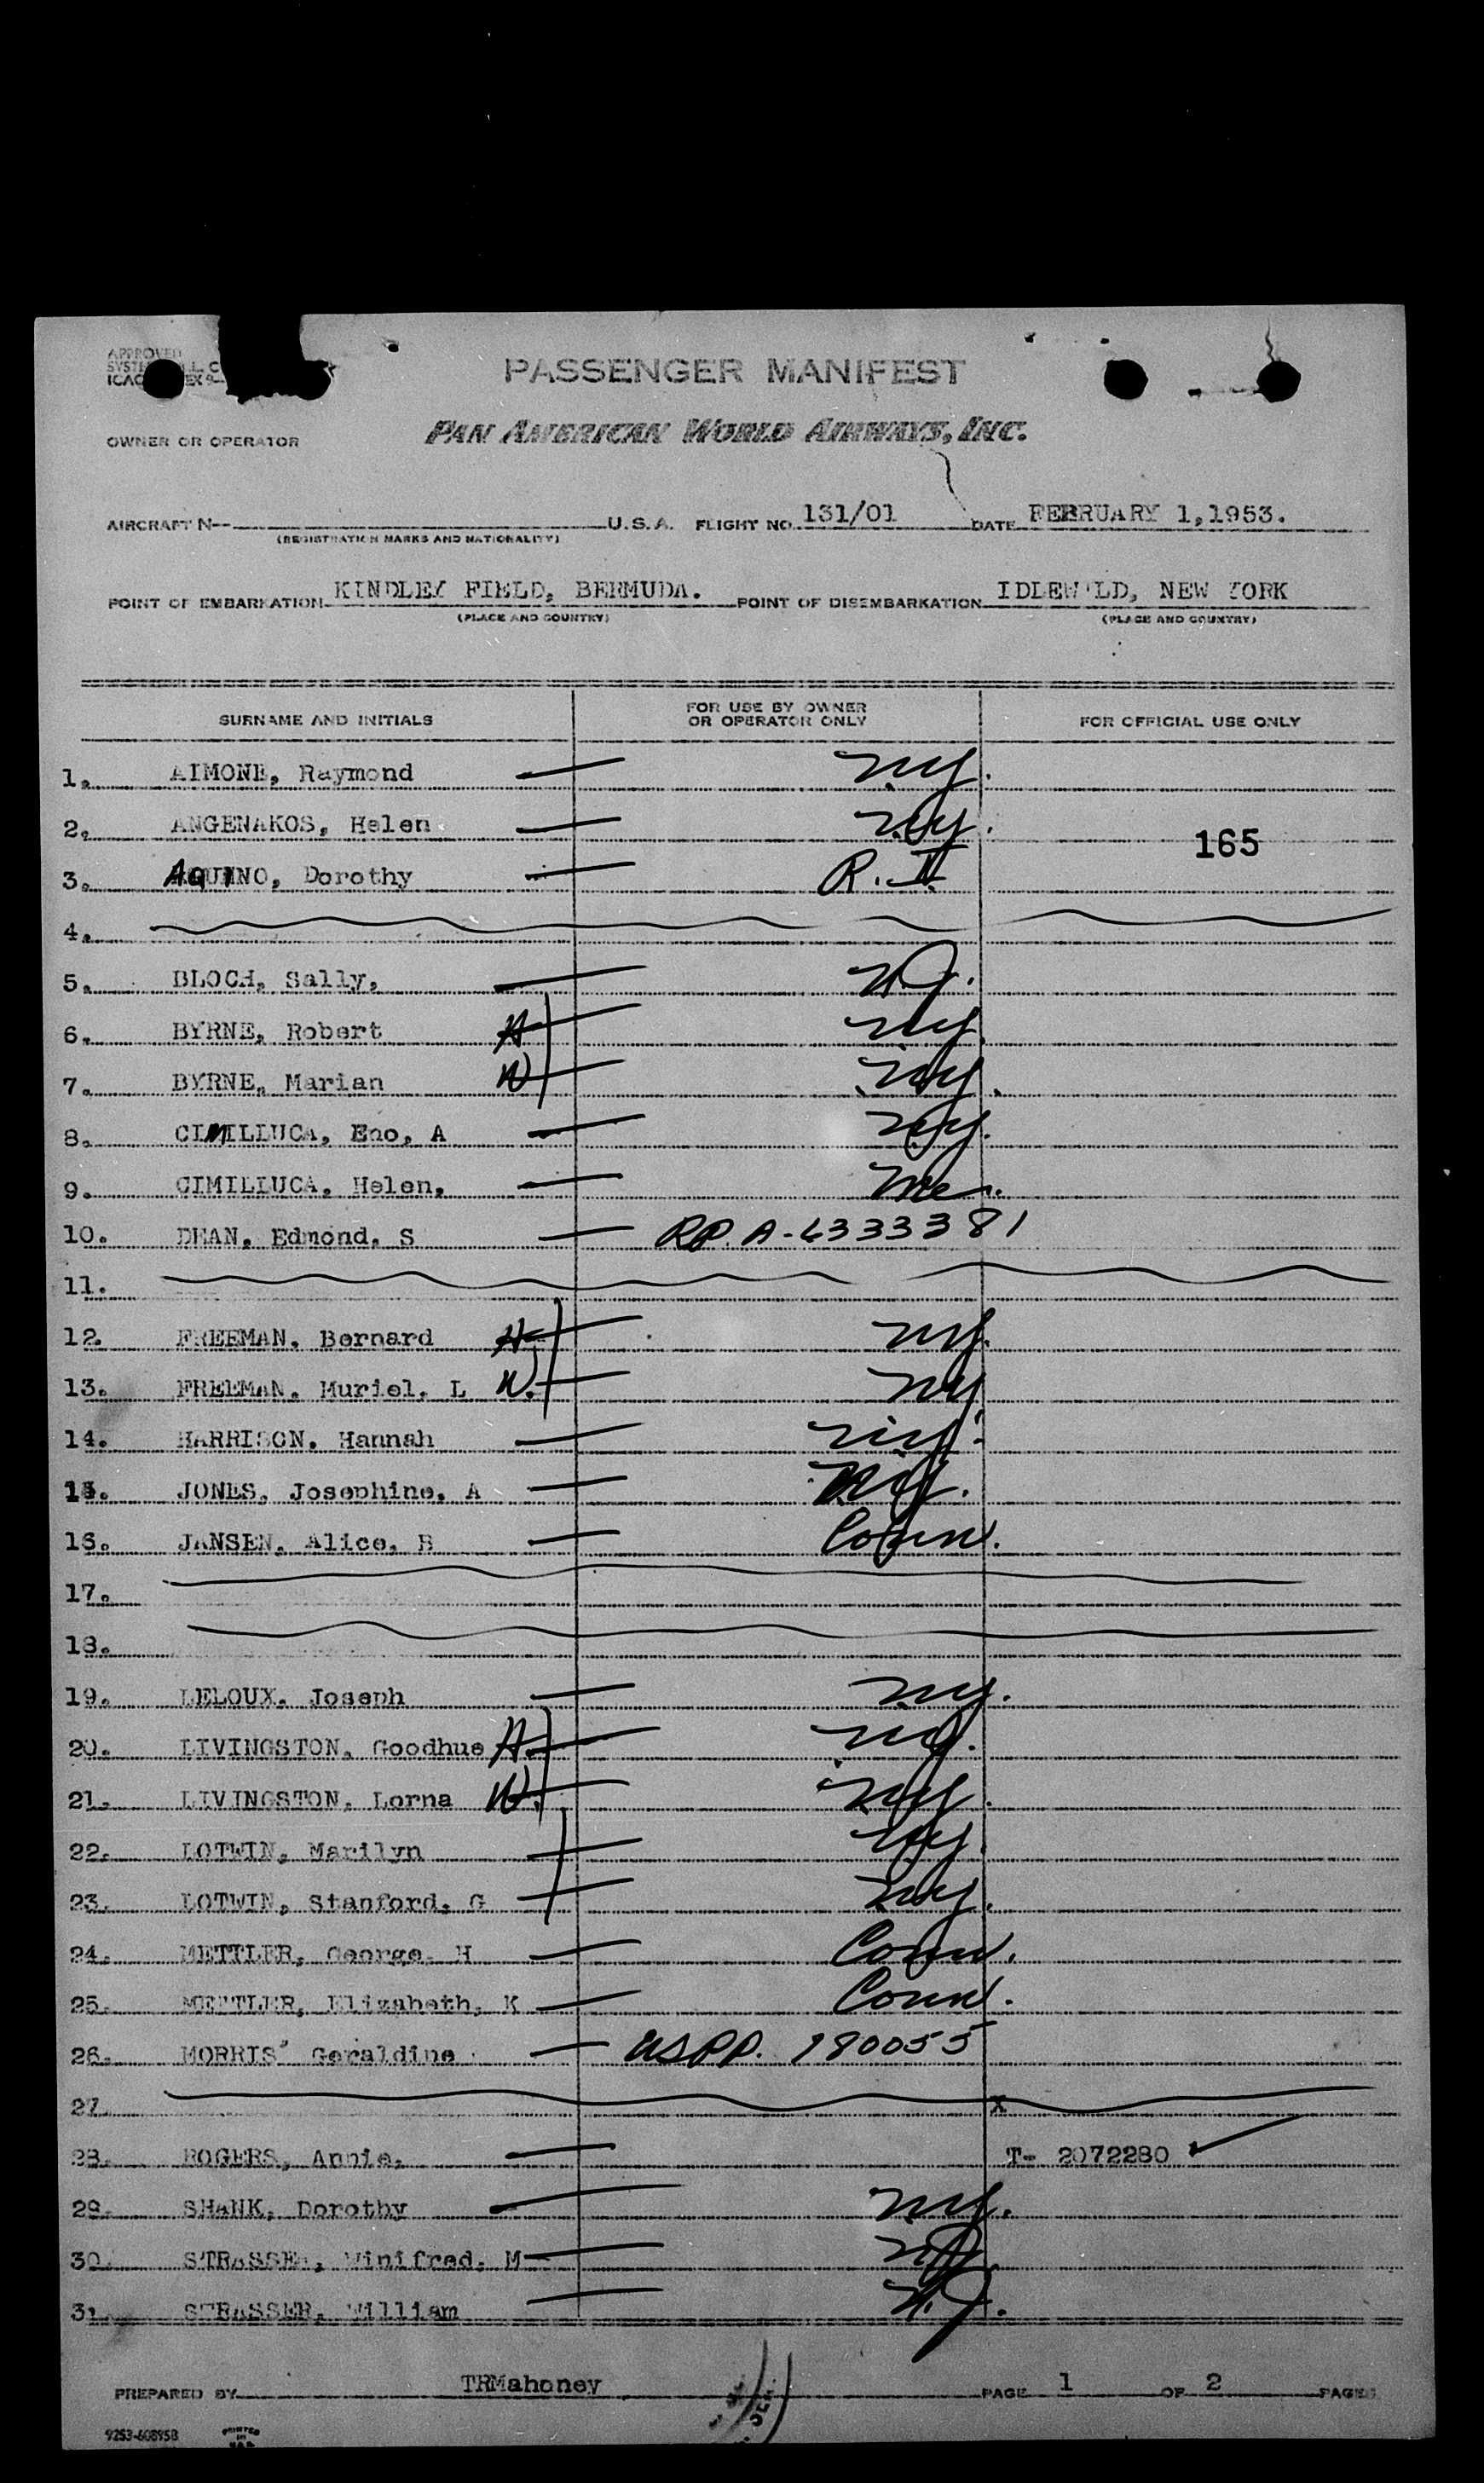 APPROVED
PASSENGER MANIFEST
OWNER OR OPERATOR
PAN AMERICAN WORLD AIRWAYS, INC.
AIRCRAFT N-- U.S.A. FLIGHT NO. 131/01 DATE FEBRUARY 1,1953.
(REGISTRATION MARKS AND NATIONALITY)
POINT OF EMBARKATION KINDLEY FIELD, BERMUDA. POINT OF DISEMBARKATION IDLEW LD, NEW YORK
(PLACE AND COUNTRY) (PLACE AND COUNTRY)
SURNAME AND INITIALS FOR USE BY OWNER OR OPERATOR ONLY FOR OFFICIAL USE ONLY
1. AIMONE, Raymond — N.Y.
2. ANGENAKOS, Helen — N.Y.
165
3. AQUINO, Dorothy — R.I.
4.
5. BLOCH, Sally, — N.J.
6. BYRNE, Robert H — N.Y.
7. BYRNE, Marian W — N.Y.
8. CIMILLUCA, Eno, A — N.Y.
9. CIMILLUCA, Helen, — Me.
10. DEAN, Edmond, S — RP. A-6333381
11.
12. FREEMAN, Bernard H — N.Y.
13. FREEMAN, Muriel, L W. — N.Y.
14. HARRISON, Hannah — N.Y.
15. JONES, Josephine, A — N.Y.
16. JANSEN, Alice, B — Conn.
17.
18.
19. LELOUX, Joseph — N.Y.
20. LIVINGSTON, Goodhue H. — N.Y.
21. LIVINGSTON, Lorna W. — N.Y.
22. LOTWIN, Marilyn — N.Y.
23. LOTWIN, Stanford, G — N.Y.
24. METTLER, George, H — Conn.
25. METTLER, Elizabeth, K — Conn.
26. MORRIS' Geraldine — USPP. 780055
27. X
28. ROGERS, Annie, — T- 2072280 ✓
29. SHANK, Dorothy — N.Y.
30. STRASSER, Winifred, M — N.J.
31. STRASSER, William — N.J.
PREPARED BY TRMahoney PAGE 1 OF 2 PAGES
9253-608958 PRINTED IN U.S.A.